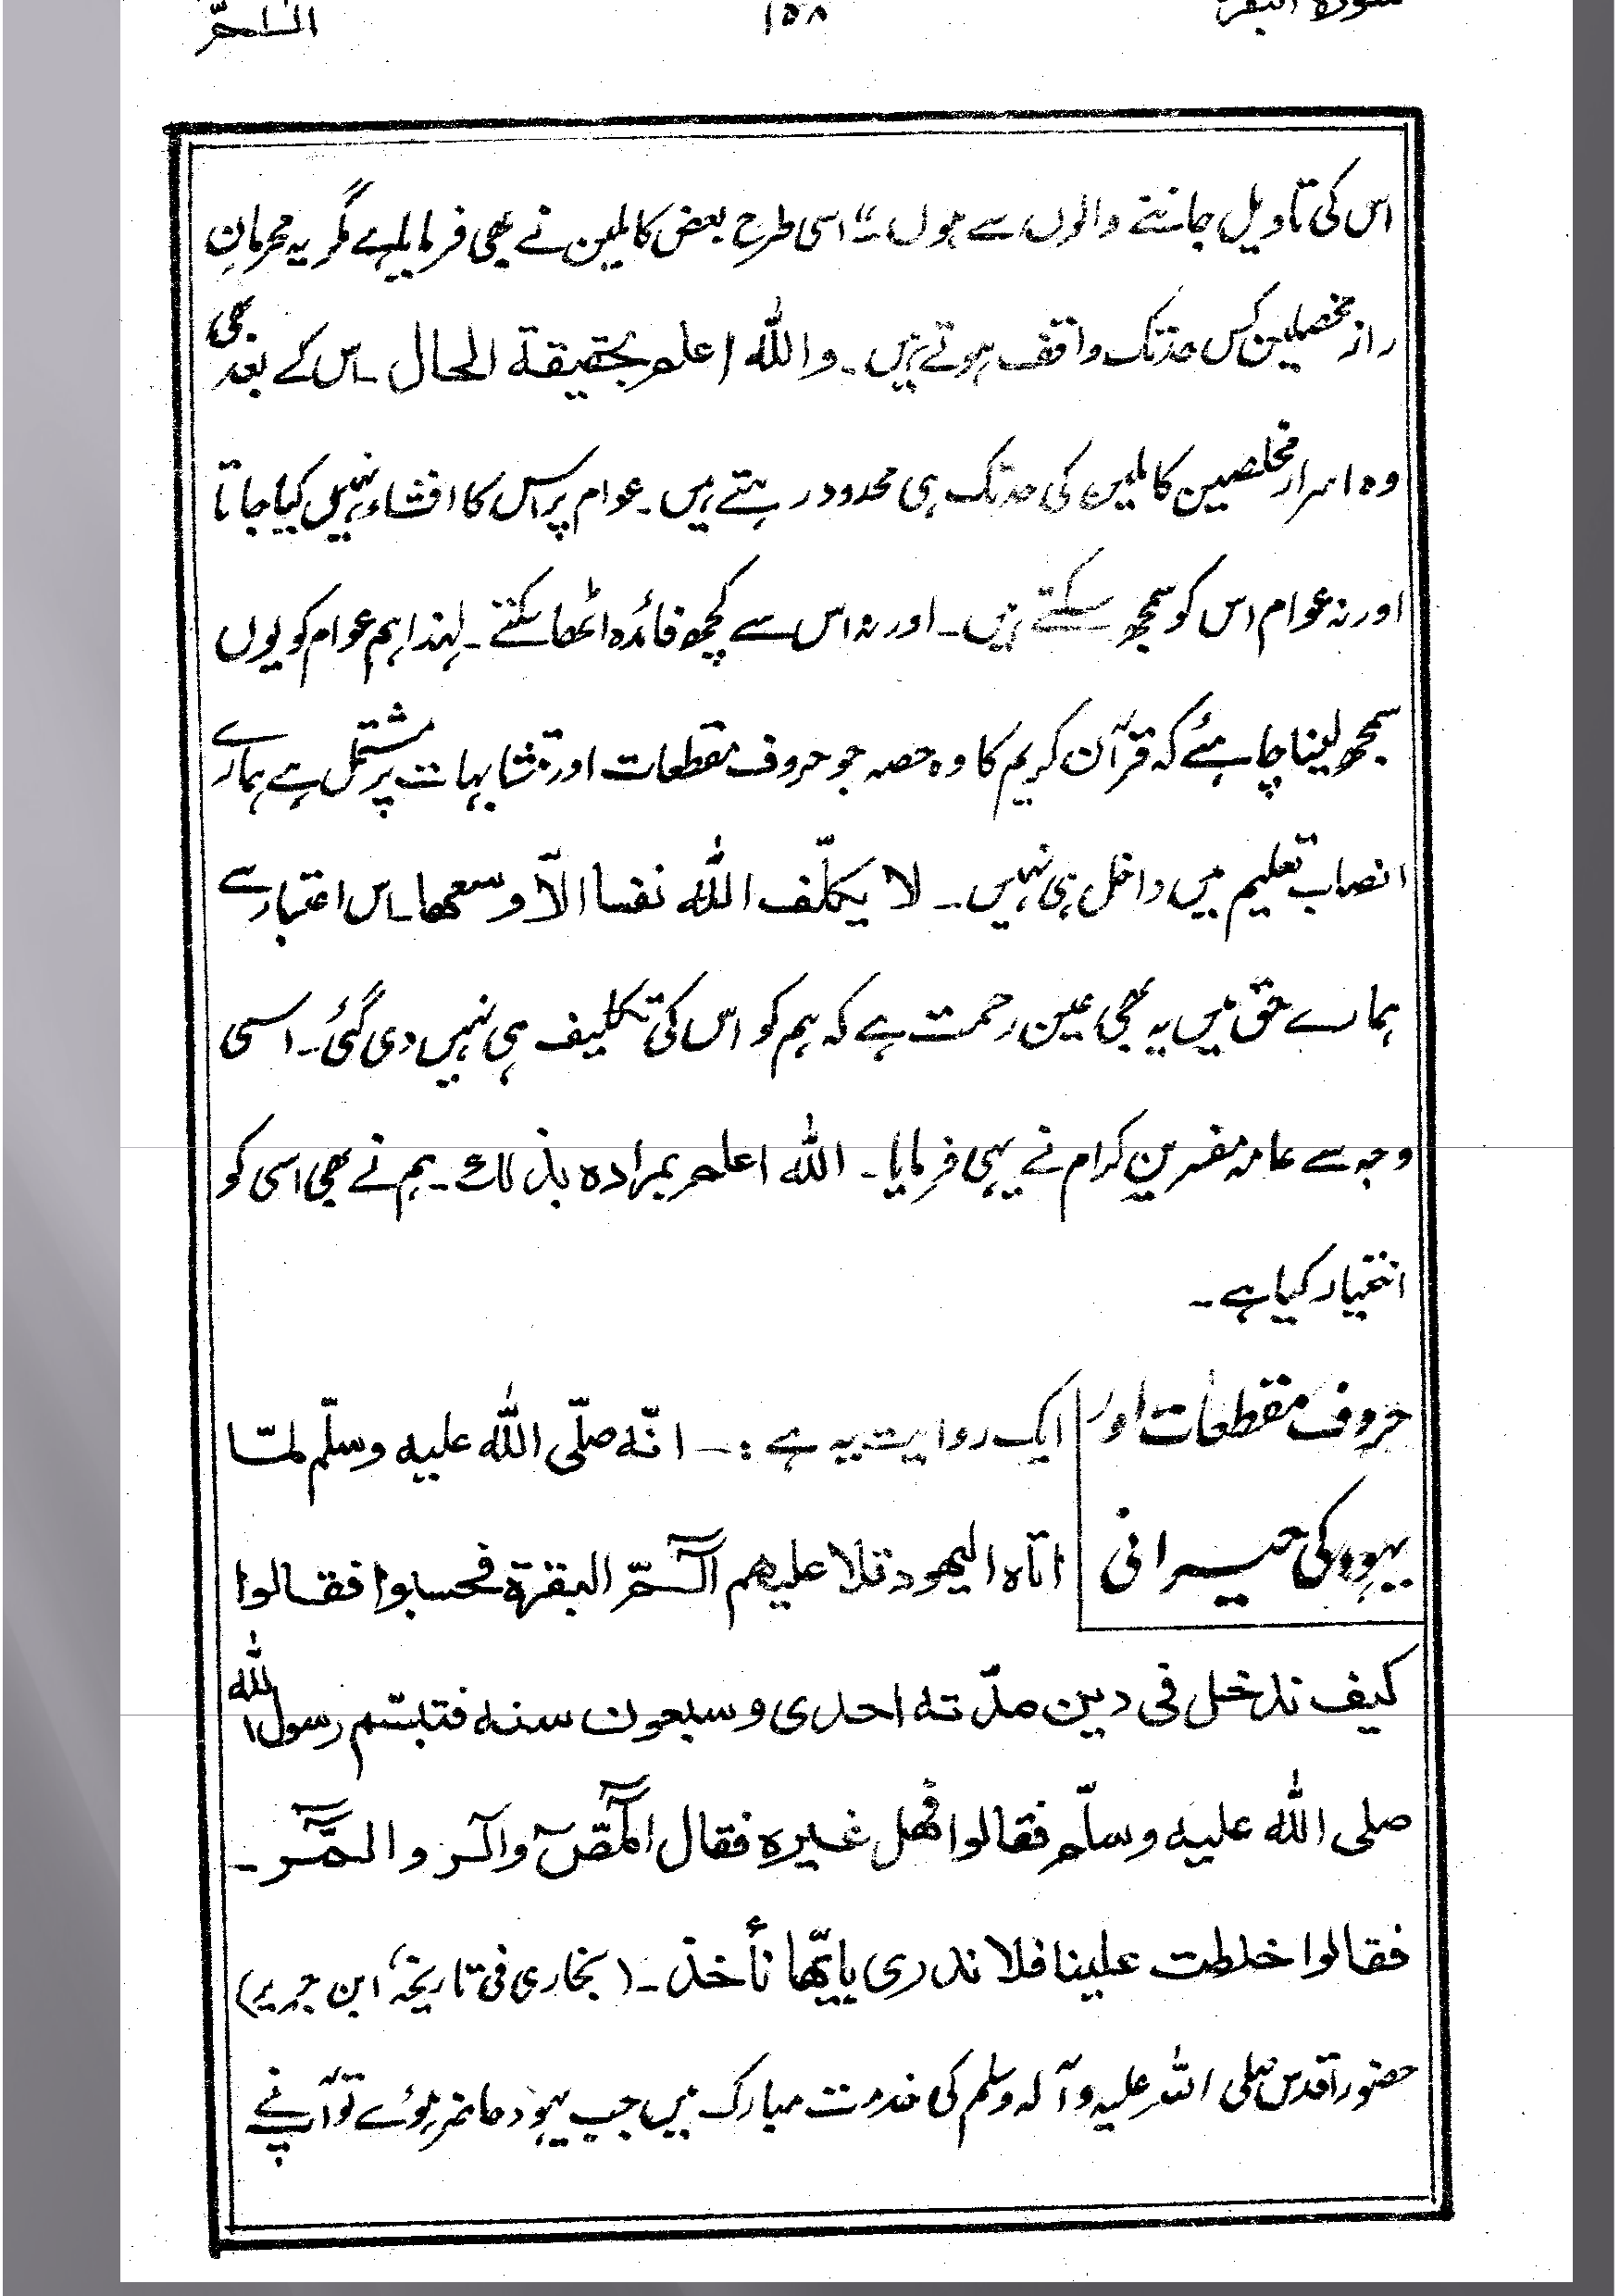 سورة البقر ١٥٨ الٓـمّٓ
اس کی تاویل جاننے والوں سے ہوں۔“ اسی طرح بعض کاملین نے بھی فرمایا ہے مگر یہ محرمانِ
راز مخصلین کس حد تک واقف ہوتے ہیں۔ واللّٰہ اعلم بحقیقة الحال۔ اس کے بعد بھی
وہ اسرار مخلصین کاملین کی حد تک ہی محدود رہتے ہیں۔ عوام پر اس کا افشاء نہیں کیا جاتا
اور نہ عوام اس کو سمجھ سکتے ہیں۔ اور نہ اس سے کچھ فائدہ اٹھا سکتے۔ لہٰذا ہم عوام کو یوں
سمجھ لینا چاہئے کہ قرآن کریم کا وہ حصہ جو حروف مقطعات اور متشابہات پر مشتمل ہے ہمارے
انصاب تعلیم میں داخل ہی نہیں۔ لا یکلّف اللّٰہ نفسا الاّ وسعھا۔ اس اعتبار سے
ہمارے حق میں یہ بھی عین رحمت ہے کہ ہم کو اس کی تکلیف ہی نہیں دی گئی۔ اسی
وجہ سے عامہ مفسرین کرام نے یہی فرمایا۔ اللّٰہ اعلم بمرادہ بذلک۔ ہم نے بھی اسی کو
اختیار کیا ہے۔
حروف مقطعات اور ایک روایت یہ ہے :۔ انّہ صلّی اللّٰہ علیہ وسلّم لمّا
یہود کی حیرانی اتاہ الیھود تلا علیھم الٓـمّٓ البقرة فحسبوا فقالوا
کیف ندخل فی دین مدّتہ احدی وسبعون سنہ فتبسّم رسول اللّٰہ
صلی اللّٰہ علیہ وسلّم فقالوا فھل غیرہ فقال الٓمّٓصٓ والٓر والٓمّٓر۔
فقالوا خلطت علینا فلا ندری بایّھا نأخذ۔ (بخاری فی تاریخہ، ابن جریر)
حضور اقدس صلی اللّٰہ علیہ وآلہ وسلم کی خدمت مبارک میں جب یہود حاضر ہوئے تو آپ نے